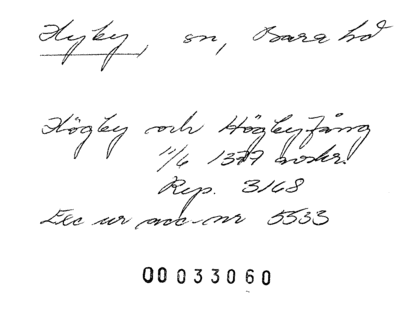 Hyby, sn, Bara hd
Högby och Högbyfäng
11/6 1379 avskr.
Rep. 3168
Exc ur acc-nr 5533
00 033060